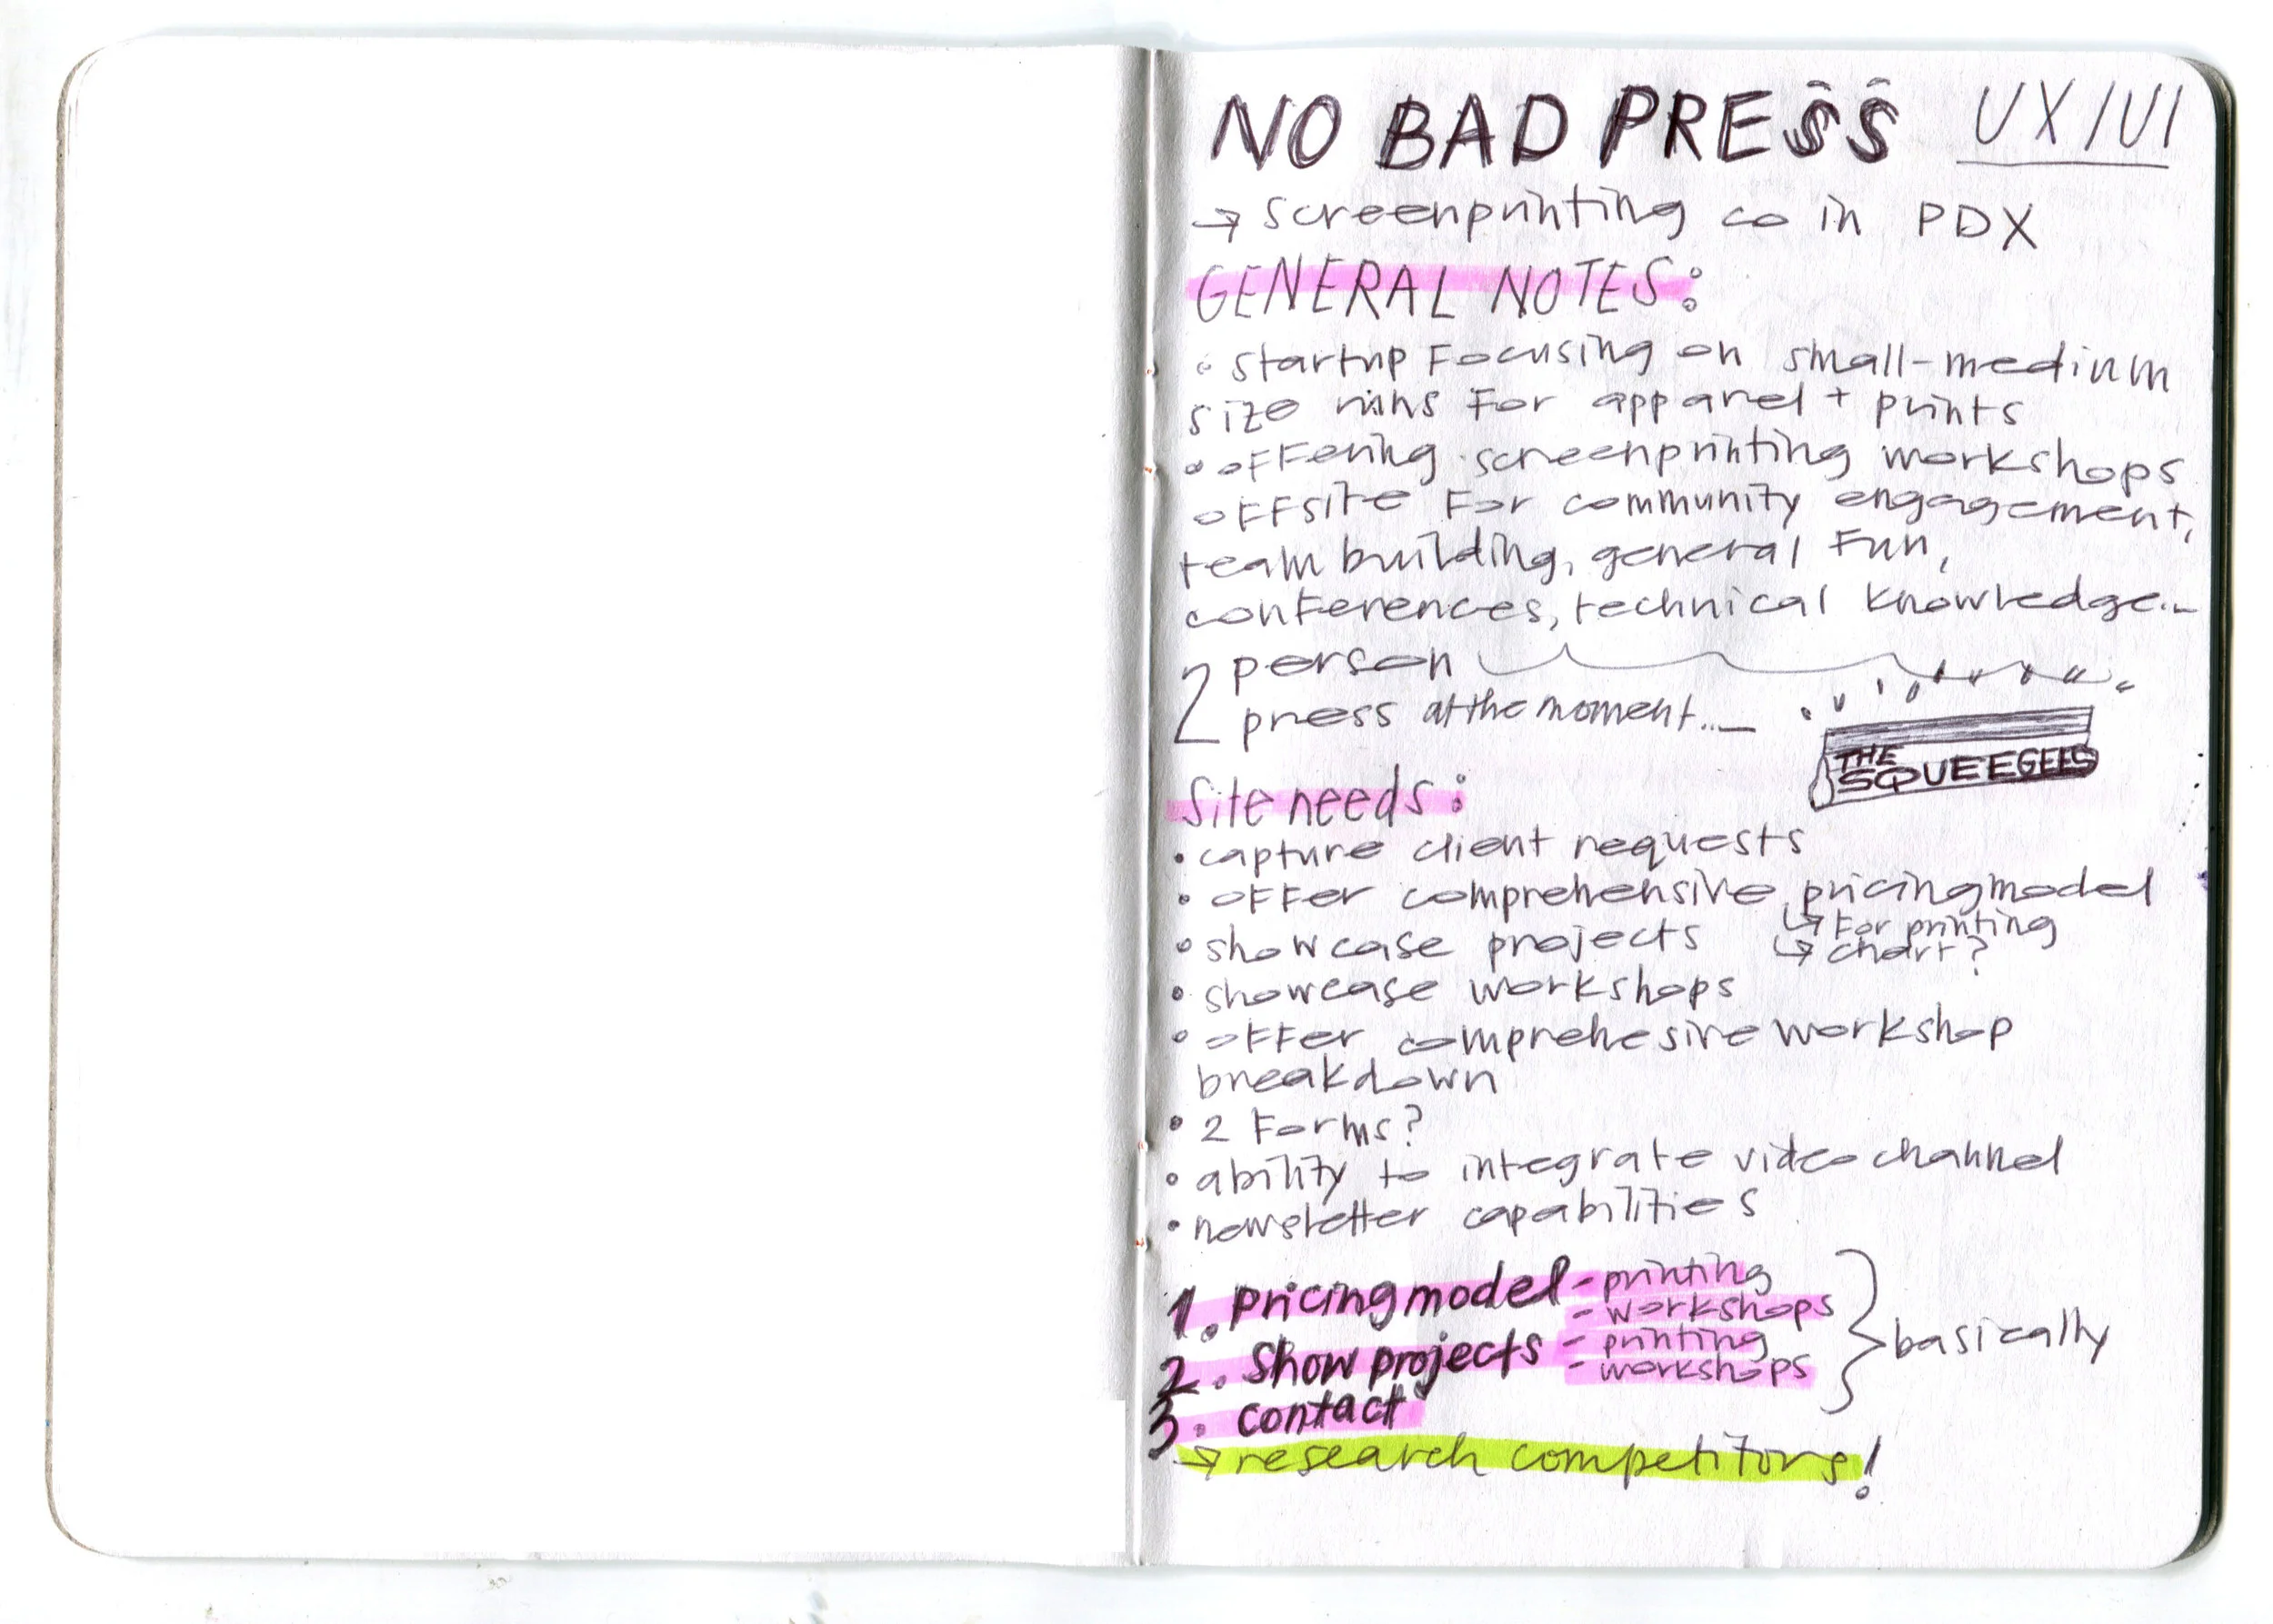 NO BAD PRESS UX/UI
→ screenprinting co in PDX
GENERAL NOTES:
• startup focusing on small-medium
size runs for apparel + prints
• offering screenprinting workshops
offsite for community engagement,
team building, general fun,
conferences, technical knowledge...
2 person
press at the moment...
THE
SQUEEGEES
Site needs:
• capture client requests
• offer comprehensive pricing model
↳ for printing
• showcase projects
↳ chart?
• showcase workshops
• offer comprehesive workshop
breakdown
• 2 forms?
• ability to integrate video channel
• newsletter capabilities
1. pricing model - printing
- workshops
2. Show projects - printing
- workshops
} basically
3. contact
→ research competitors!